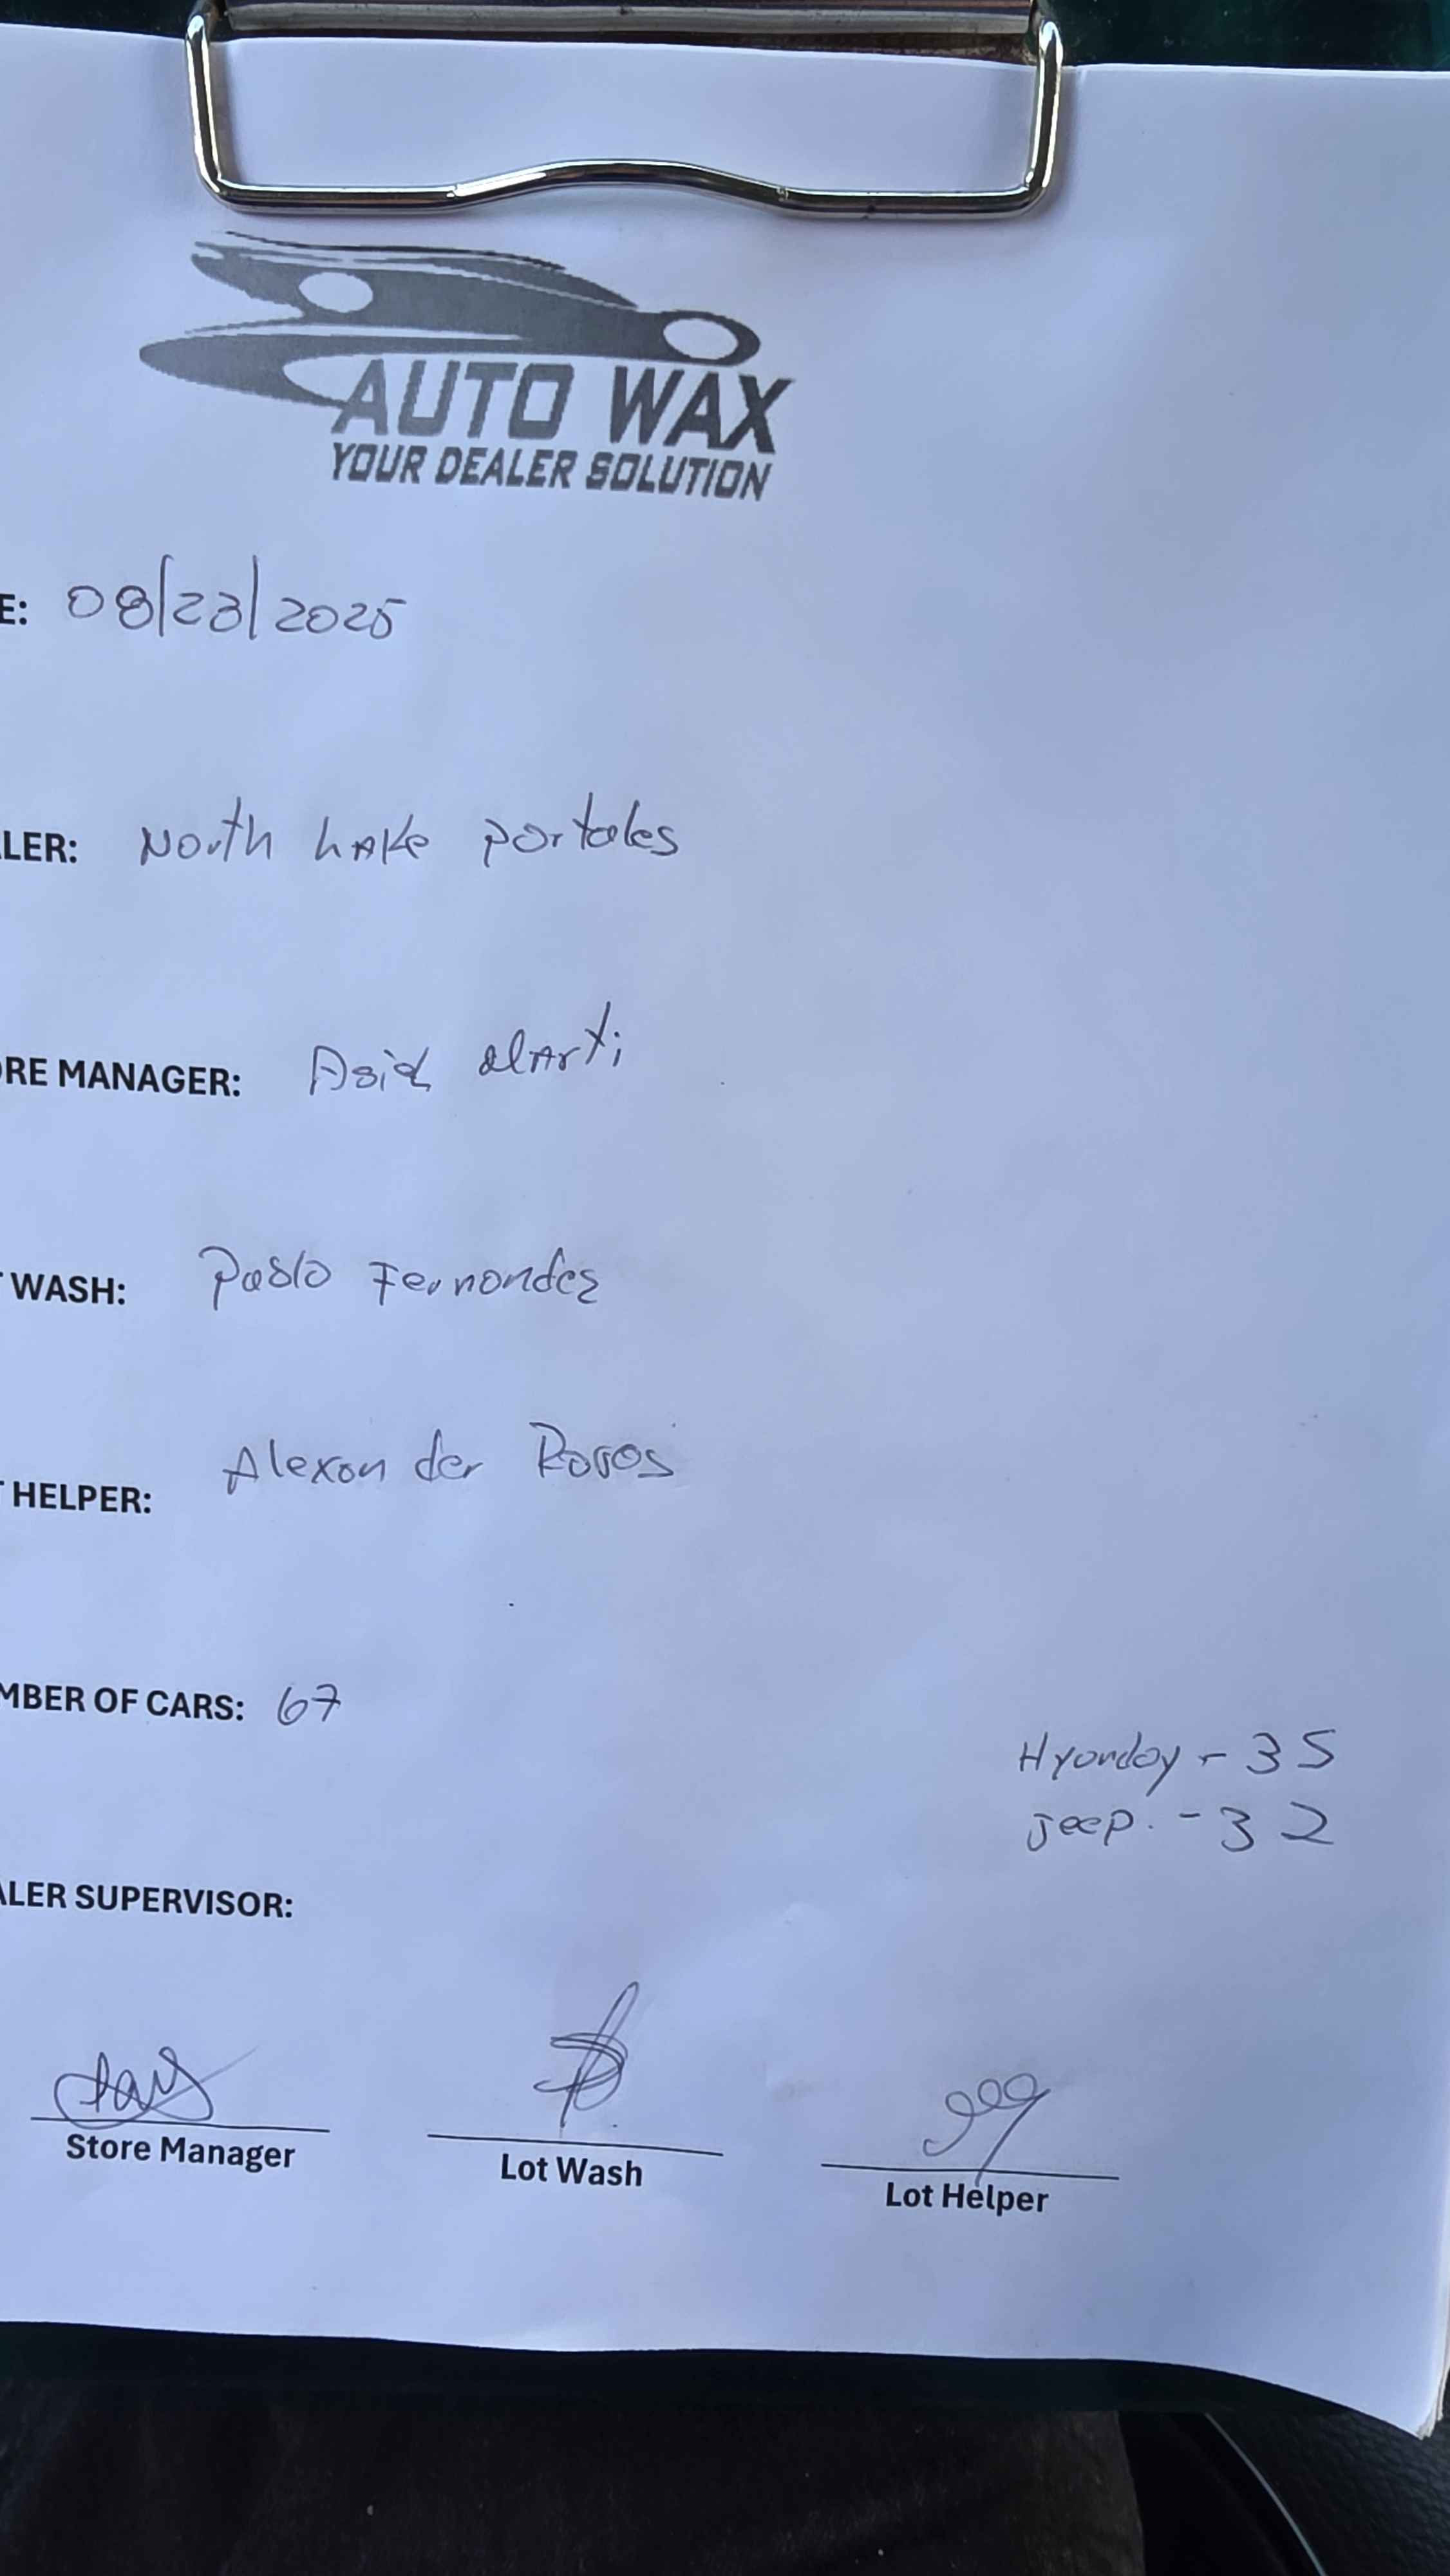 AUTO WAX
YOUR DEALER SOLUTION
E: 08/23/2025
LER: North Lake portales
RE MANAGER: Asid alArti
WASH: Pablo Fernandez
HELPER: Alexander
MBER OF CARS: 67
Hyonday - 35
Jeep. - 32
LER SUPERVISOR:
Store Manager
Lot Wash
Lot Helper